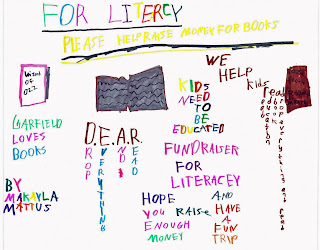 FOR LITERCY
PLEASE HELP RAISE MONEY FOR BOOKS
Wizard
OF
OZZ
GARFIELD
LOVES
BOOKS
BY
MAKAYLA
MATTUS
D.E.A.R.
DROP
EVERYTHING
AND
READ
WE
HELP
KIDS
NEED
TO
BE
EDUCATED
FUNDRAISER
FOR
LITERACEY
HOPE
YOU RAISE
ENOUGH
MONEY
AND
HAVE
A
FUN
TRIP
Kids
read
education
book
drop everything and read